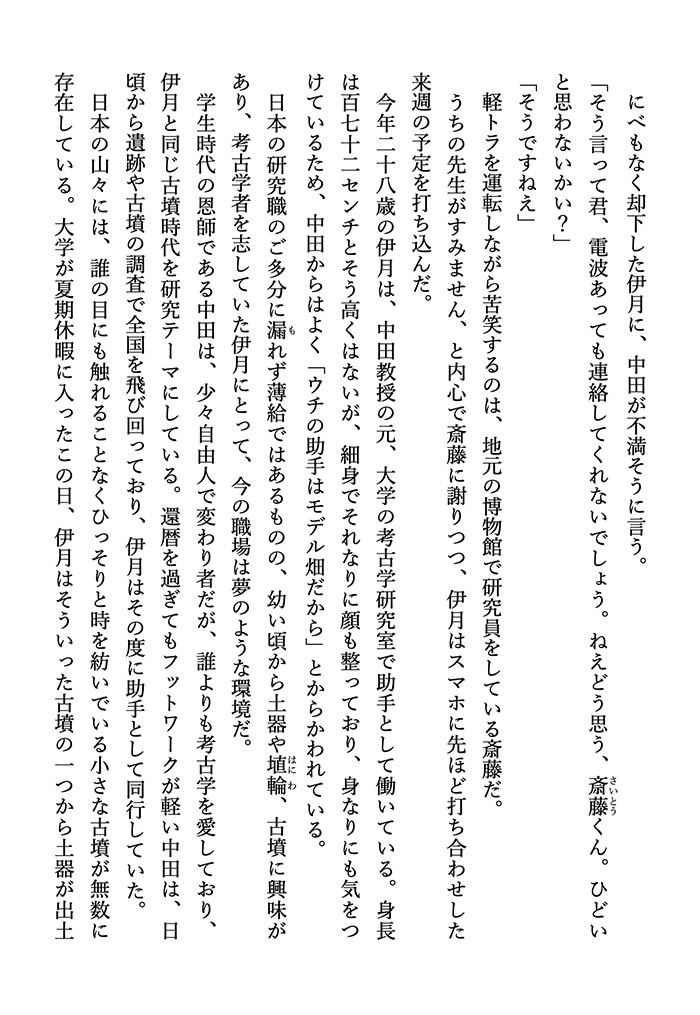 にべもなく却下した伊月に、中田が不満そうに言う。
「そう言って君、電波あっても連絡してくれないでしょう。ねえどう思う、斎藤くん。ひどい
と思わないかい？」
「そうですねえ」
軽トラを運転しながら苦笑するのは、地元の博物館で研究員をしている斎藤だ。
うちの先生がすみません、と内心で斎藤に謝りつつ、伊月はスマホに先ほど打ち合わせした
来週の予定を打ち込んだ。
今年二十八歳の伊月は、中田教授の元、大学の考古学研究室で助手として働いている。身長
は百七十二センチとそう高くはないが、細身でそれなりに顔も整っており、身なりにも気をつ
けているため、中田からはよく「ウチの助手はモデル畑だから」とからかわれている。
日本の研究職のご多分に漏れず薄給ではあるものの、幼い頃から土器や埴輪、古墳に興味が
あり、考古学者を志していた伊月にとって、今の職場は夢のような環境だ。
学生時代の恩師である中田は、少々自由人で変わり者だが、誰よりも考古学を愛しており、
伊月と同じ古墳時代を研究テーマにしている。還暦を過ぎてもフットワークが軽い中田は、日
頃から遺跡や古墳の調査で全国を飛び回っており、伊月はその度に助手として同行していた。
日本の山々には、誰の目にも触れることなくひっそりと時を紡いでいる小さな古墳が無数に
存在している。大学が夏期休暇に入ったこの日、伊月はそういった古墳の一つから土器が出土